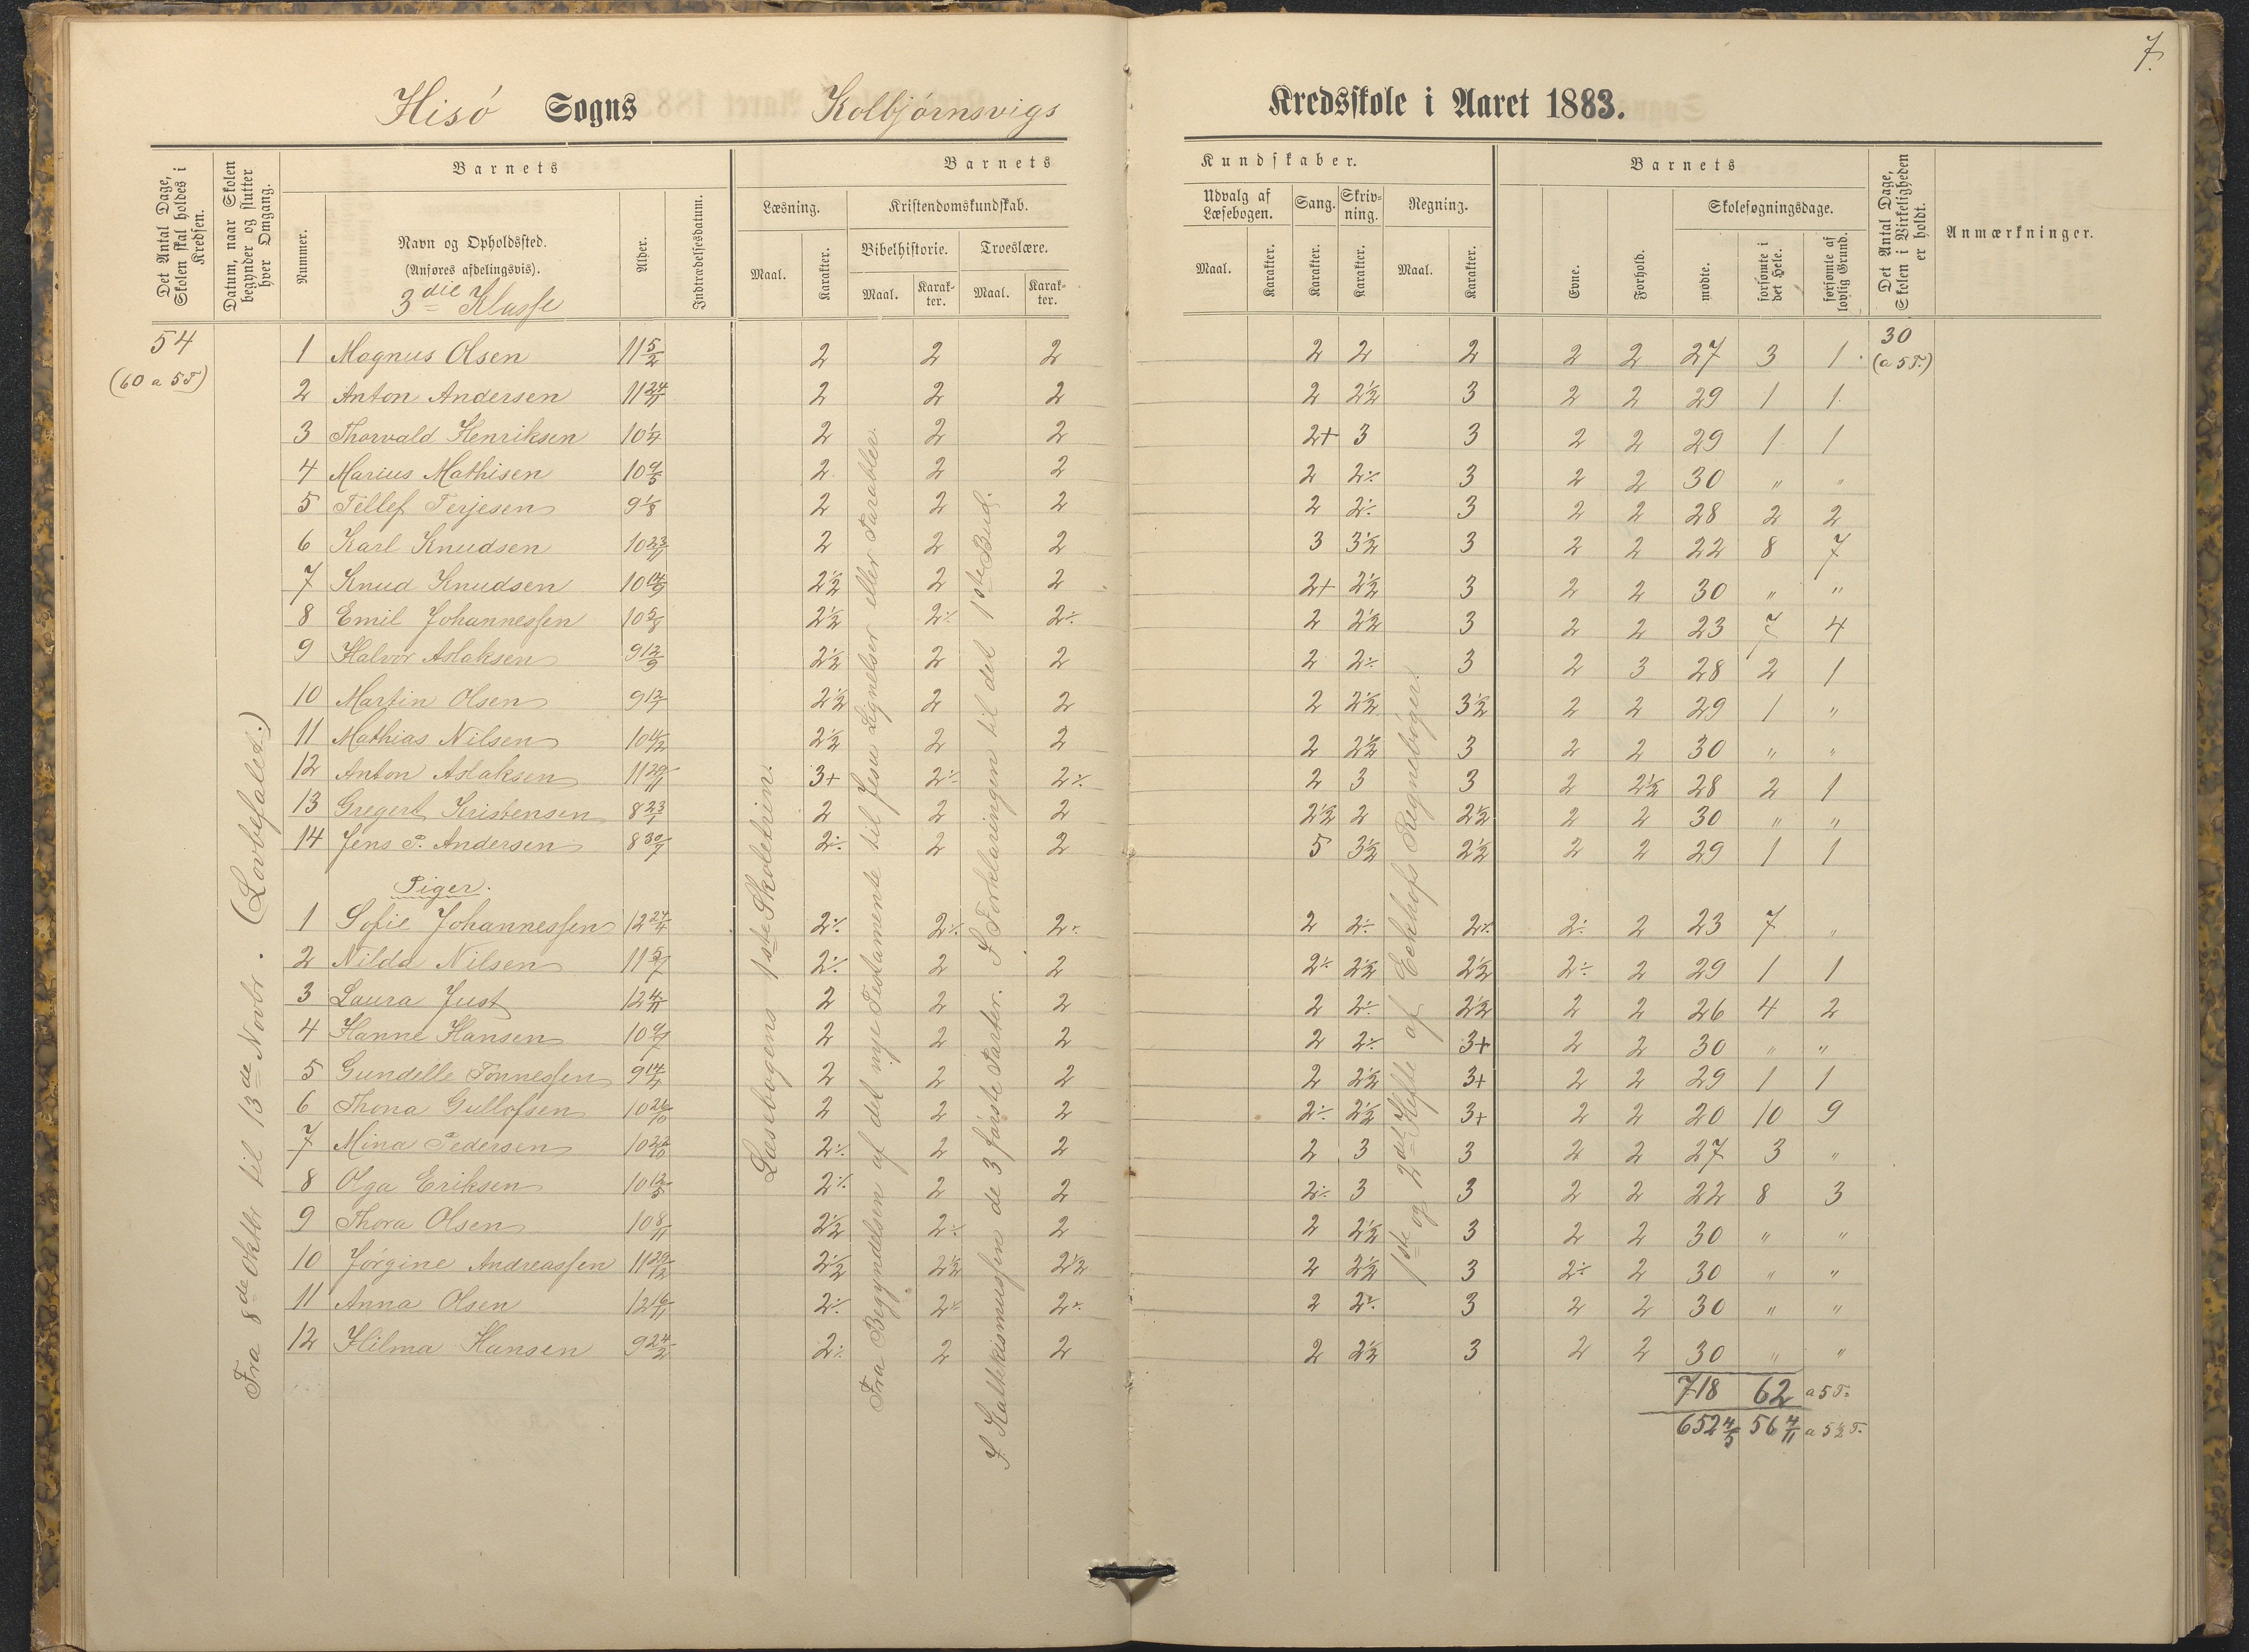 7.
Hisö Sogns Kolbjørnsvigs Kredsskole i Aaret 1883.
Det Antal Dage, Skolen skal holdes i Kredsen.
Datum, naar Skolen begynder og slutter hver Omgang.
Barnets
Nummer.
Navn og Opholdssted.
(Anføres afdelingsvis).
3die Klasse
Alder.
Indtrædelsesdatum.
Barnets Kundskaber.
Læsning.
Maal. Karakter.
Kristendomskundskab.
Bibelhistorie. Troeslære.
Maal. Karakter. Maal. Karakter.
Udvalg af Læsebogen.
Maal. Karakter.
Sang. Karakter.
Skrivning. Karakter.
Regning.
Maal. Karakter.
Barnets
Evne. Forhold.
Skolesøgningsdage.
mødte. forsømte i det Hele. forsømte af lovlig Grund.
Det Antal Dage, Skolen i Virkeligheden er holdt.
Anmærkninger.
54
(60 a 5 T)
30
(a 5 T.)
Fra 8de Oktbr til 13de Novbr. (Lovbefalet.)
Læsebogens 1ste Skoletrin.
Fra Begyndelsen af det nye Testamente til Jesu Lignelser eller Parabler.
I Katekismussen de 3 første Parter. I Forklaringen til det 1ste Bud.
1ste og 2det Hefte af Eckhofs Regnebøger.
1 Magnus Olsen 11 5/2 2 2 2 2 2 2 2 2 27 3 1
2 Anton Andersen 11 24/11 2 2 2 2 2½ 3 2 2 29 1 1
3 Thorvald Henriksen 10 1/4 2 2 2 2+ 3 3 2 2 29 1 1
4 Marius Mathisen 10 9/5 2 2 2 2 2÷ 3 2 2 30 " "
5 Tellef Terjesen 9 1/8 2 2 2 2 2÷ 3 2 2 28 2 2
6 Karl Knudsen 10 23/11 2 2 2 3 3½ 3 2 2 22 8 7
7 Knud Knudsen 10 14/9 2½ 2 2 2+ 2½ 3 2 2 30 " "
8 Emil Johannessen 10 5/8 2½ 2÷ 2÷ 2 2½ 3 2 2 23 7 4
9 Halvor Aslaksen 9 12/9 2½ 2 2 2 2÷ 3 2 3 28 2 1
10 Martin Olsen 9 12/7 2½ 2 2 2 2½ 3½ 2 2 29 1 "
11 Mathias Nilsen 10 11/2 2½ 2 2 2 2½ 3 2 2 30 " "
12 Anton Aslaksen 11 29/11 3+ 2÷ 2÷ 2 3 3 2 2½ 28 2 1
13 Gregert Kristensen 8 23/1 2 2 2 2½ 2 2½ 2 2 30 " "
14 Jens P. Andersen 8 30/7 2÷ 2 2 5 3½ 2½ 2 2 29 1 1
Piger.
1 Sofie Johannessen 12 27/4 2÷ 2÷ 2÷ 2 2÷ 2÷ 2÷ 2 23 7 "
2 Nilda Nilsen 11 5/7 2÷ 2 2 2÷ 2½ 2½ 2÷ 2 29 1 1
3 Laura Just 12 4/11 2 2 2 2 2÷ 2½ 2 2 26 4 2
4 Hanne Hansen 10 9/7 2 2 2 2 2÷ 3+ 2 2 30 " "
5 Gundelle Tönnessen 9 14/4 2 2 2 2 2½ 3+ 2 2 29 1 1
6 Thona Gullofsen 10 26/10 2 2 2 2÷ 2½ 3+ 2 2 20 10 9
7 Mina Pedersen 10 22/10 2÷ 2 2 2 3 3 2 2 27 3 "
8 Olga Eriksen 10 13/5 2÷ 2 2 2÷ 3 3 2 2 22 8 3
9 Thora Olsen 10 8/11 2½ 2÷ 2 2 2½ 3 2 2 30 " "
10 Jörgine Andreassen 11 29/12 2½ 2½ 2½ 2 2½ 3 2÷ 2 30 " "
11 Anna Olsen 12 16/11 2÷ 2÷ 2÷ 2 2÷ 3 2 2 30 " "
12 Hilma Hansen 9 24/2 2÷ 2 2 2 2½ 3 2 2 30 " "
718 62 a 5 T.
652 4/5 56 4/11 a 5½ T.